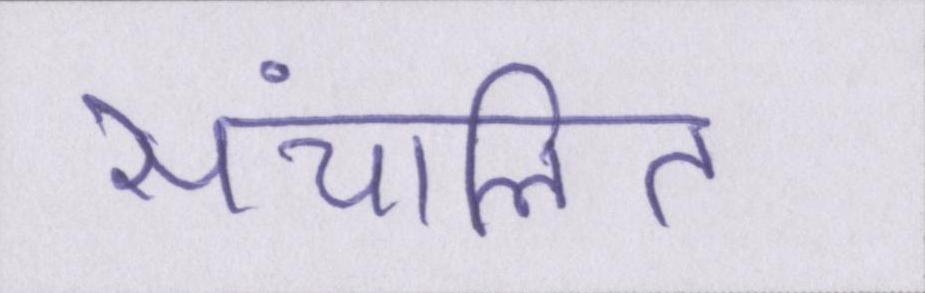 संचालित